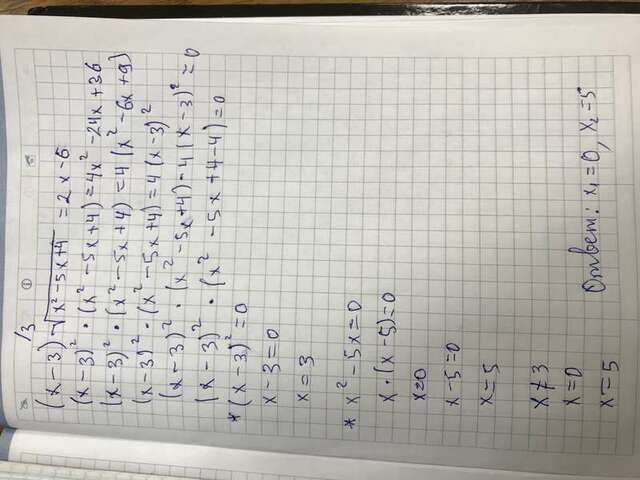 13
(x-3)·√(x²-5x+4) = 2x-6
(x-3)²·(x²-5x+4)=4x²-24x+36
(x-3)²·(x²-5x+4)=4(x²-6x+9)
(x-3)²·(x²-5x+4)=4(x-3)²
(x-3)²·(x²-5x+4)-4(x-3)²=0
(x-3)²·(x²-5x+4-4)=0
*(x-3)²=0
x-3=0
x=3
* x²-5x=0
x·(x-5)=0
x=0
x-5=0
x=5
x≠3
x=0
x=5
Ответ: x₁=0, x₂=5